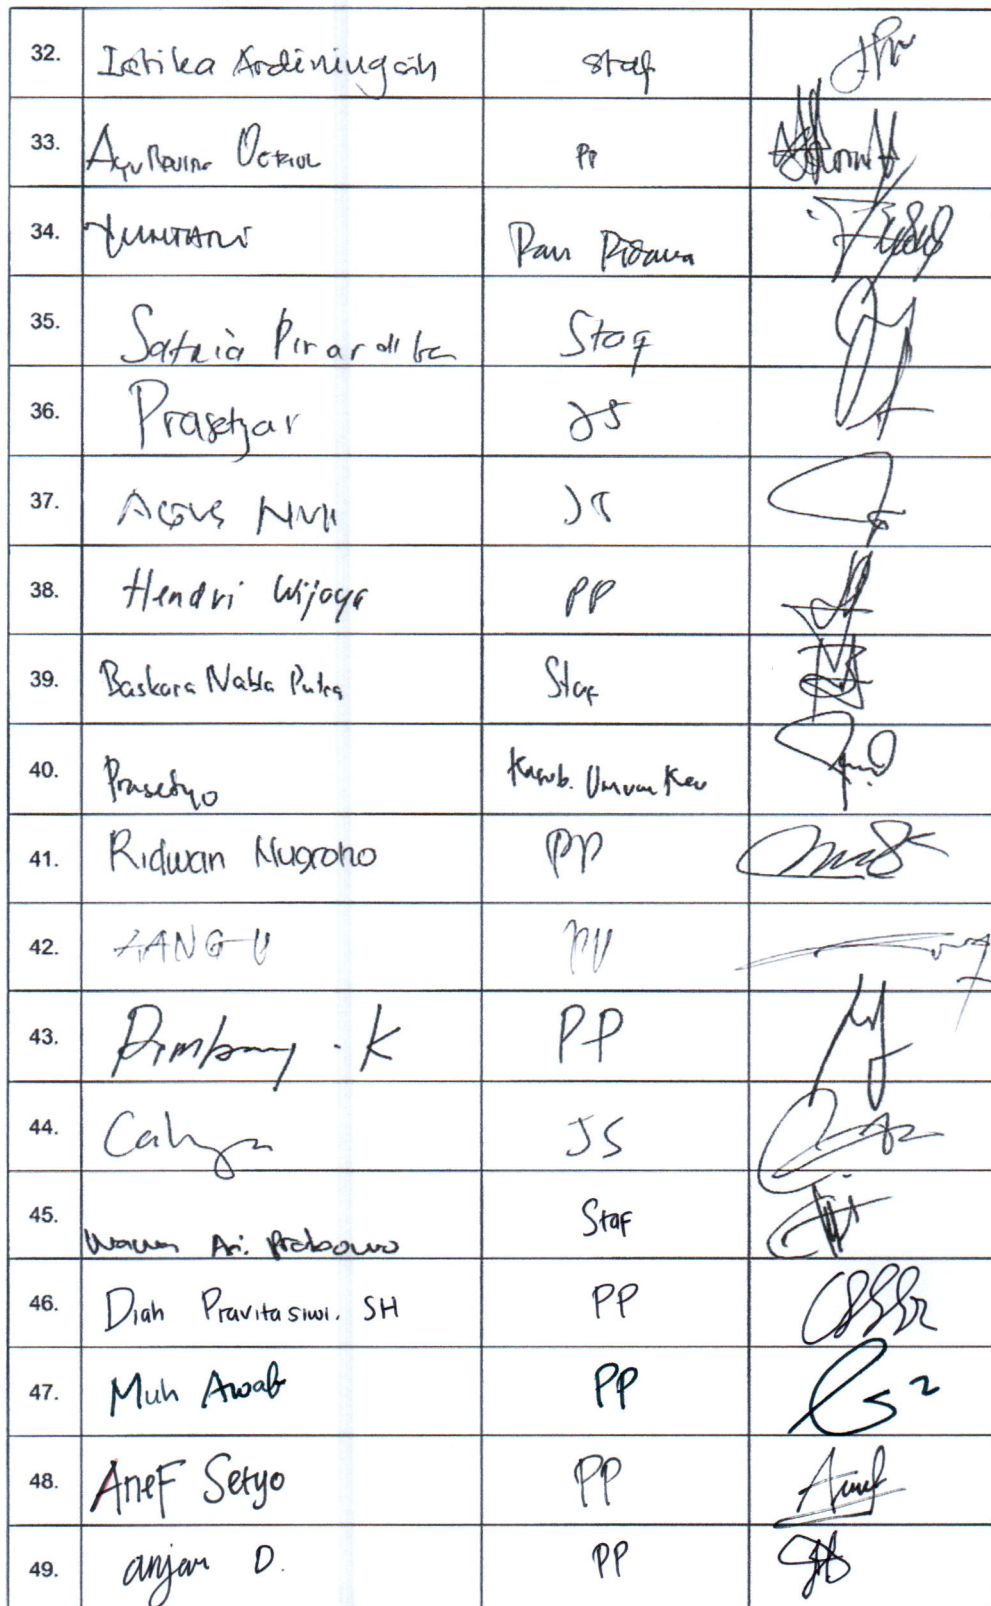 32. Istika Ardiningsih staf
33. Ayu PP
34. YUNITARI Pan Pidana
35. Satria Staf
36. Prasetyar JS
37. AGUS JS
38. Hendri Wijaya PP
39. Baskara Nabla Putra Staf
40. Prasetyo Kasub. Umum Keu
41. Ridwan Nugroho PP
42.
43. K PP
44. Cahya JS
45. Wawan Ari. Prabowo Staf
46. Diah Pravitasiwi. SH PP
47. Muh Awab PP
48. Arief Setyo PP
49. anjar D. PP